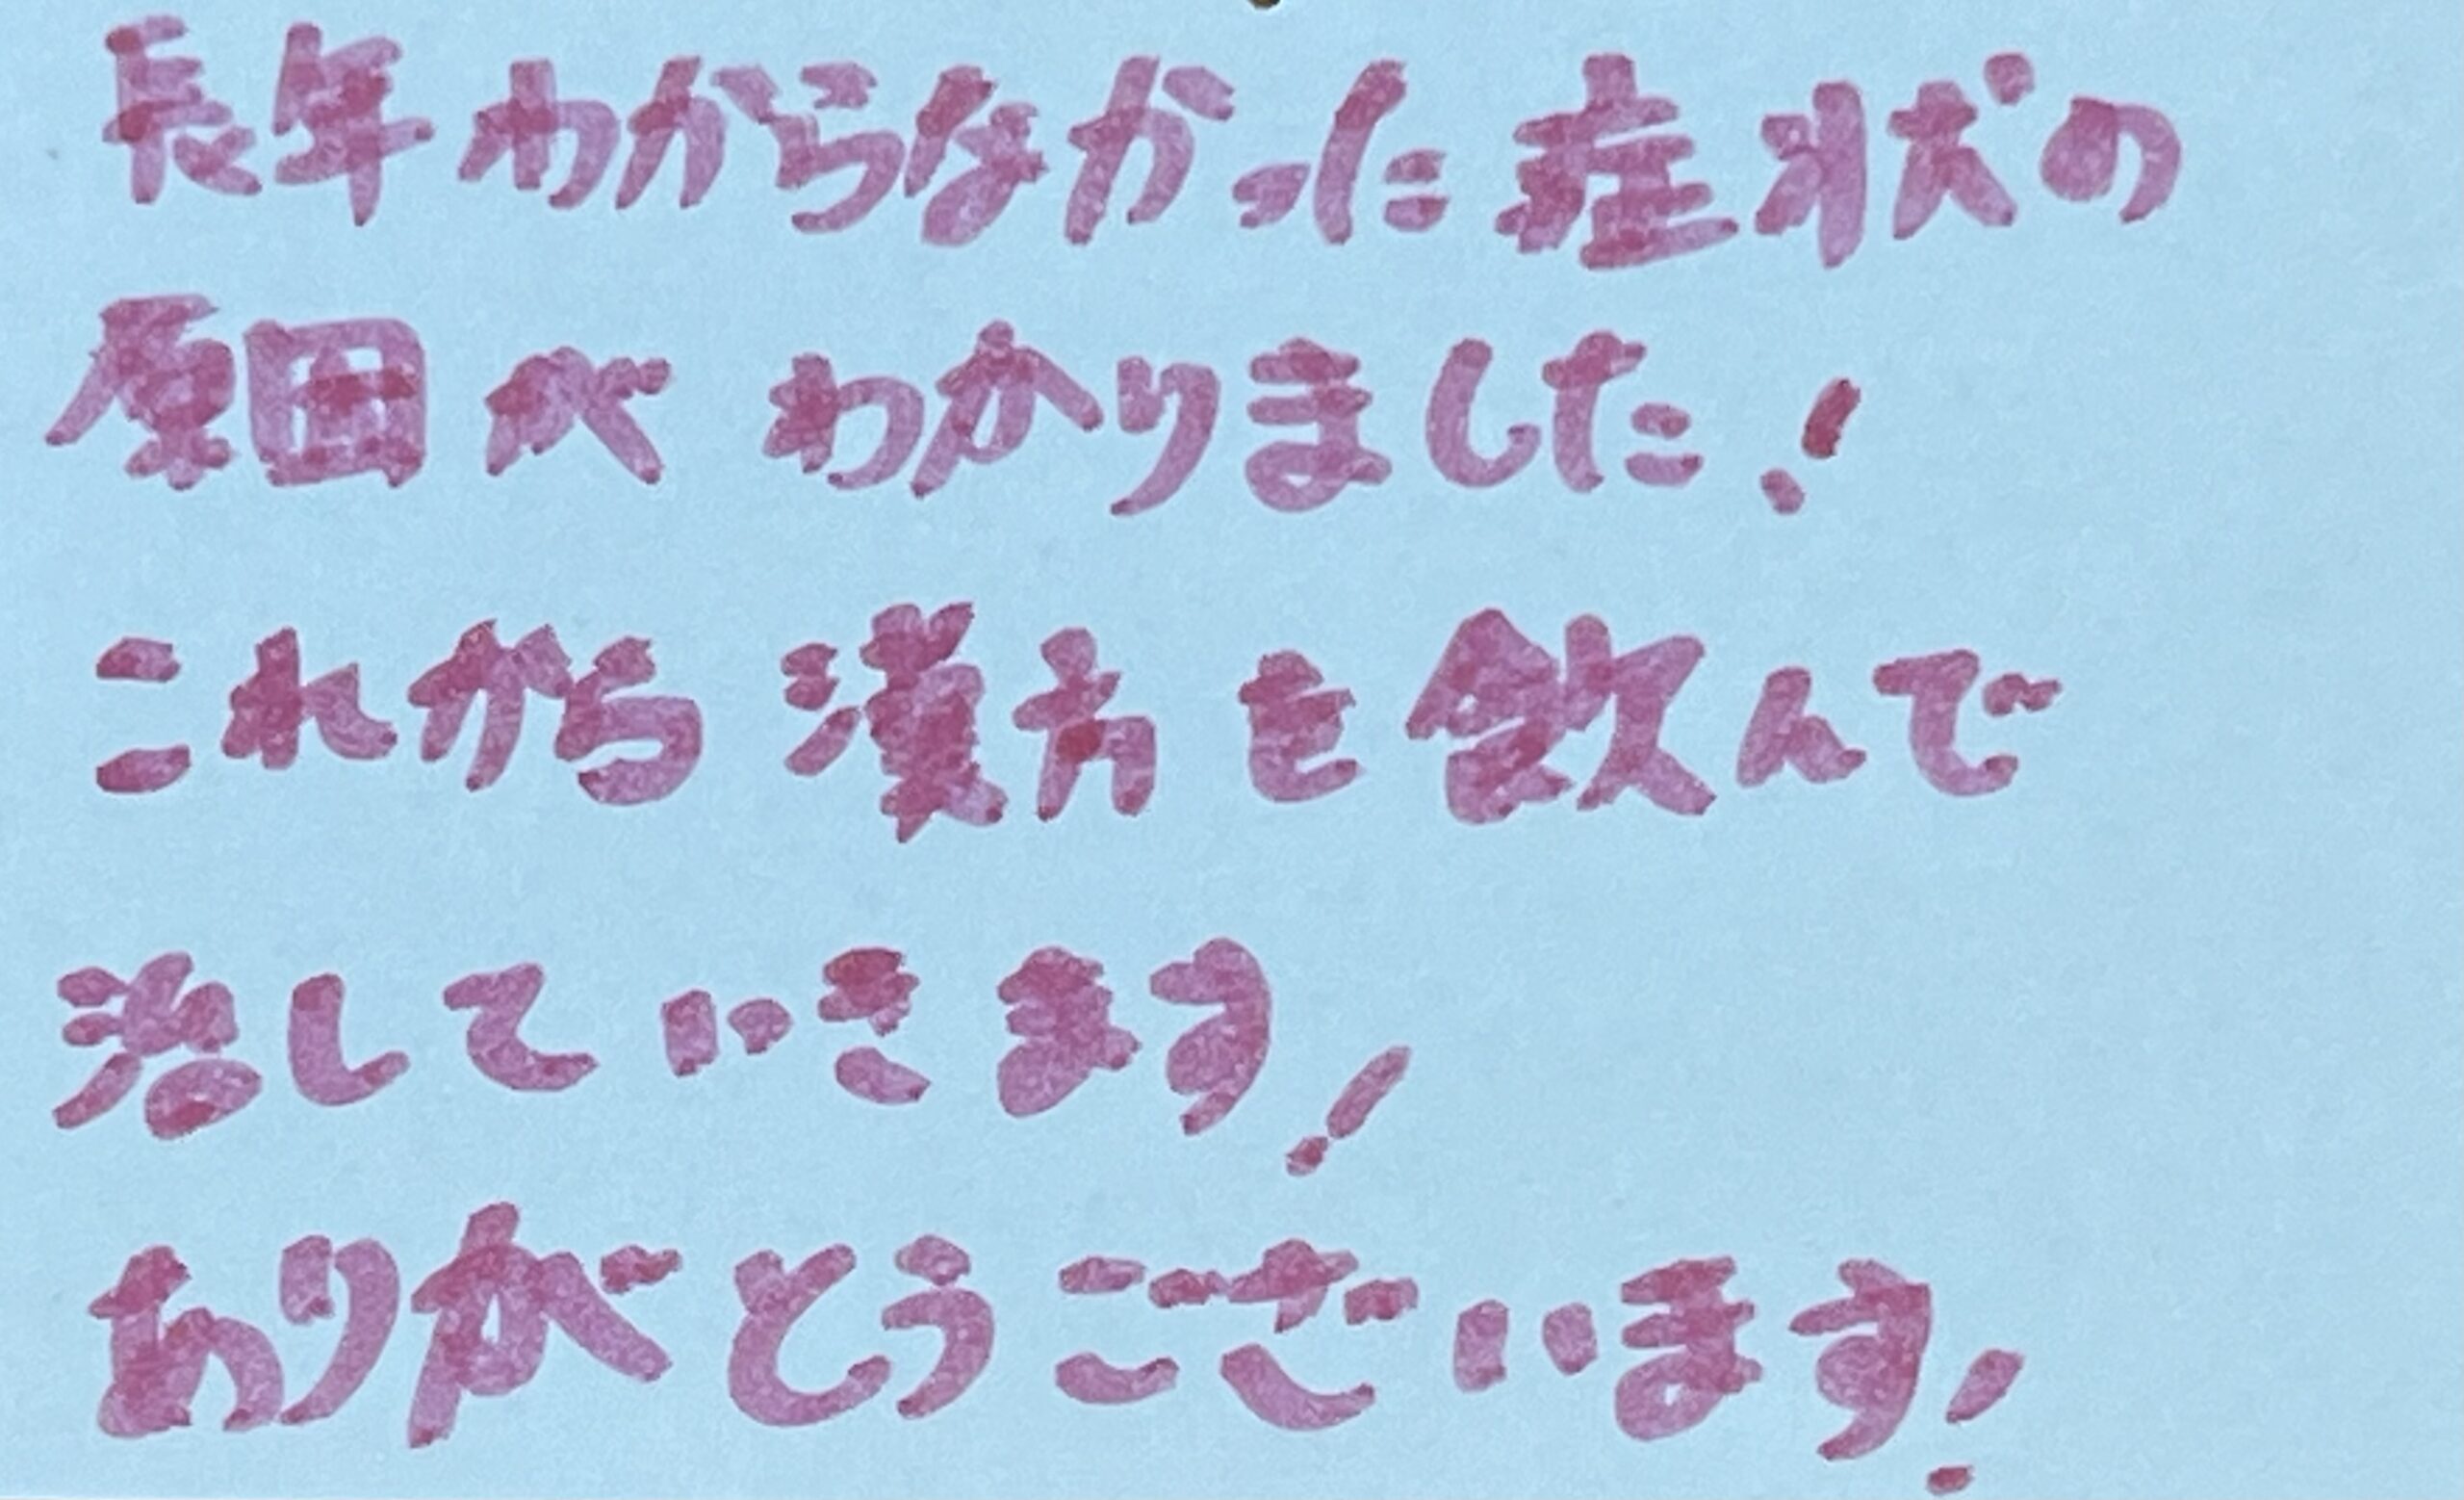 長年わからなかった症状の
原因がわかりました!
これから漢方を飲んで
治していきます!
ありがとうございます!